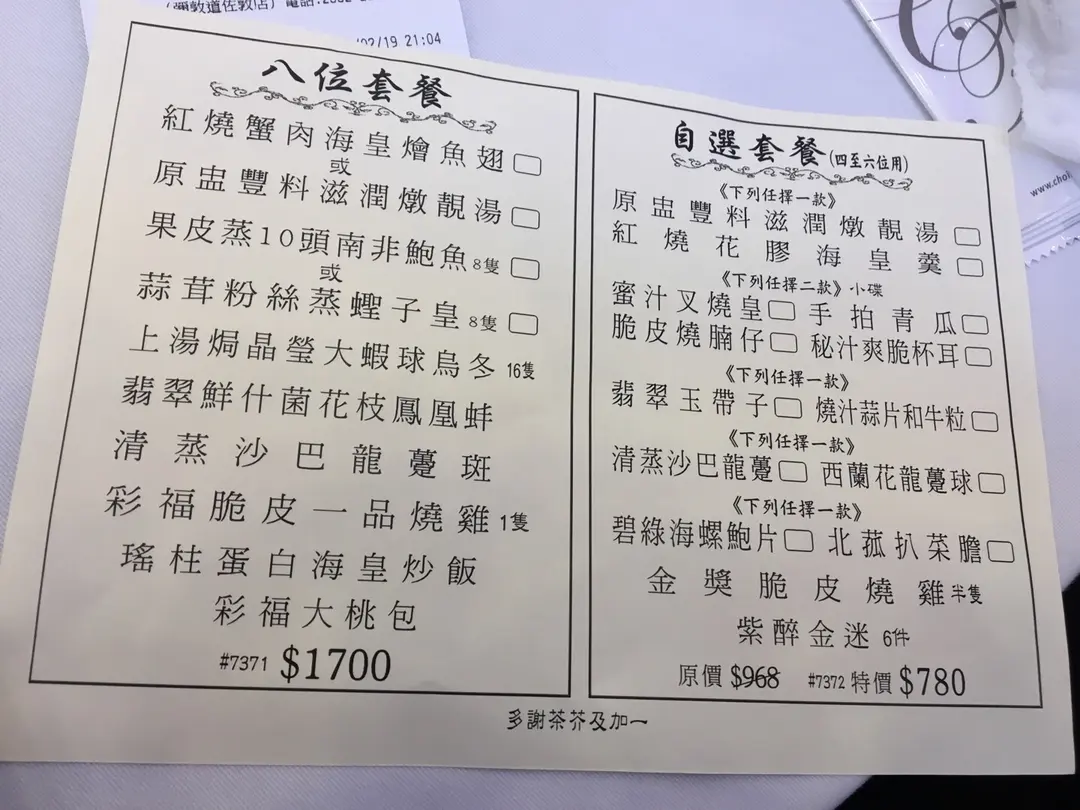 (彌敦道佐敦店) 電話:2
02/19 21:04
www.chol
八位套餐
紅燒蟹肉海皇燴魚翅
或
原盅豐料滋潤燉靚湯
果皮蒸10頭南非鮑魚8隻
或
蒜茸粉絲蒸蟶子皇8隻
上湯焗晶瑩大蝦球烏冬16隻
翡翠鮮什菌花枝鳳凰蚌
清蒸沙巴龍躉斑
彩福脆皮一品燒雞1隻
瑤柱蛋白海皇炒飯
彩福大桃包
#7371 $1700
自選套餐(四至六位用)
《下列任擇一款》
原盅豐料滋潤燉靚湯
紅燒花膠海皇羹
《下列任擇二款》小碟
蜜汁叉燒皇 手拍青瓜
脆皮燒腩仔 秘汁爽脆杯耳
《下列任擇一款》
翡翠玉帶子 燒汁蒜片和牛粒
《下列任擇一款》
清蒸沙巴龍躉 西蘭花龍躉球
《下列任擇一款》
碧綠海螺鮑片 北菰扒菜膽
金獎脆皮燒雞半隻
紫醉金迷 6件
原價 $968 #7372 特價 $780
多謝茶芥及加一